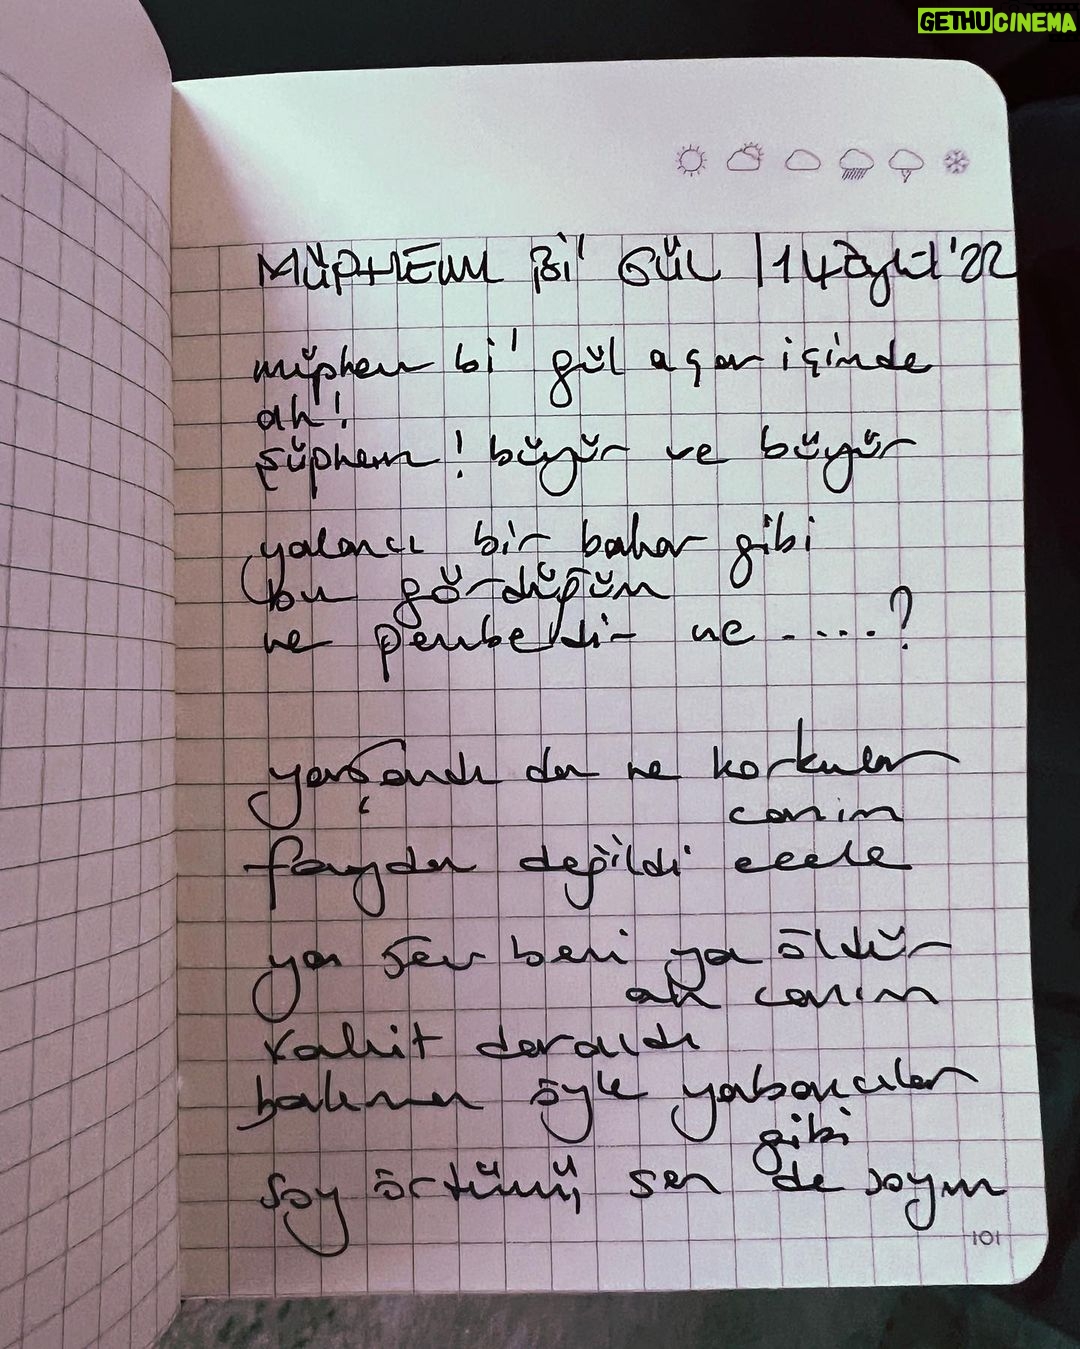 GETHUCINEMA
MÜPHEM Bi' GÜL | 14 Eylül '22
müphem bi' gül açar içinde
ah!
şüphem! büyür ve büyür
yalancı bir bahar gibi
bu gördüğüm
ne pembedir ne ....?
yaşandı da ne korkular
canım
fayda değildi ecele
ya sev beni ya öldür
ah canım
vakit daraldı
bakma öyle yabancılar
gibi
soy örtümü, sen de soyun
101